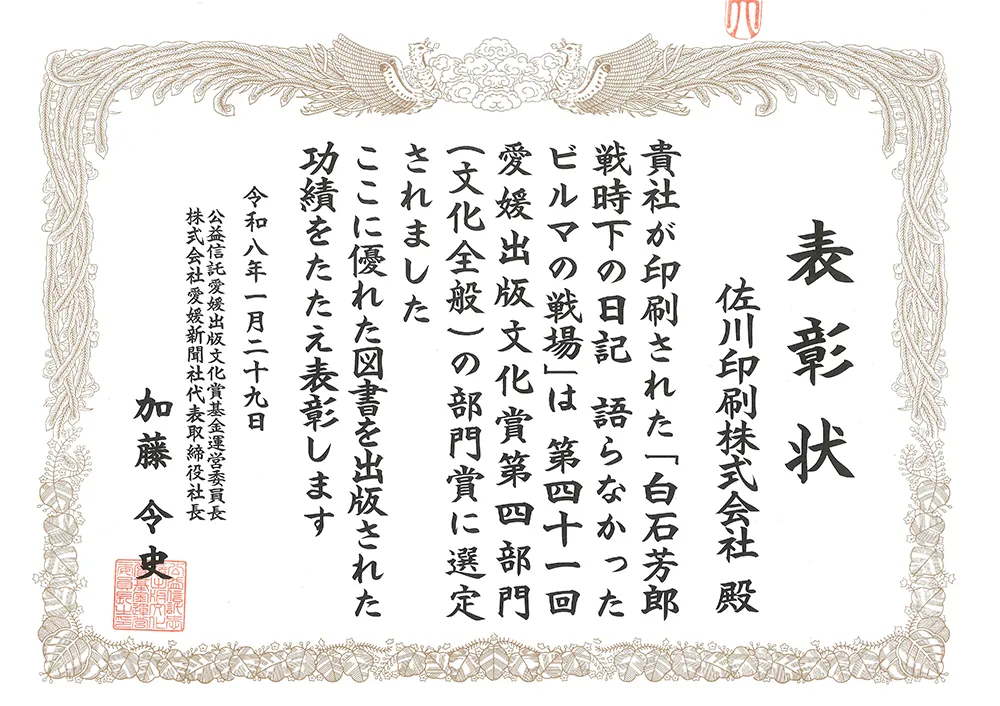 表彰状
佐川印刷株式会社 殿
貴社が印刷された「白石芳郎
戦時下の日記 語らなかった
ビルマの戦場」は 第四十一回
愛媛出版文化賞第四部門
（文化全般）の部門賞に選定
されました
ここに優れた図書を出版された
功績をたたえ表彰します
令和八年一月二十九日
公益信託愛媛出版文化賞基金運営委員長
株式会社愛媛新聞社代表取締役社長
加藤 令史